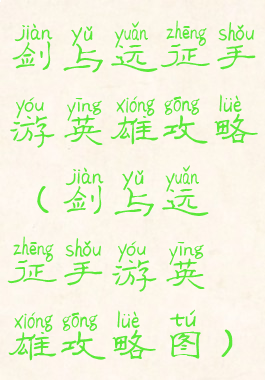 jiàn yǔ yuǎn zhēng shǒu
剑与远征手
yóu yīng xióng gōng lüè
游英雄攻略
jiàn yǔ yuǎn
(剑与远
zhēng shǒu yóu yīng
征手游英
xióng gōng lüè tú
雄攻略图)